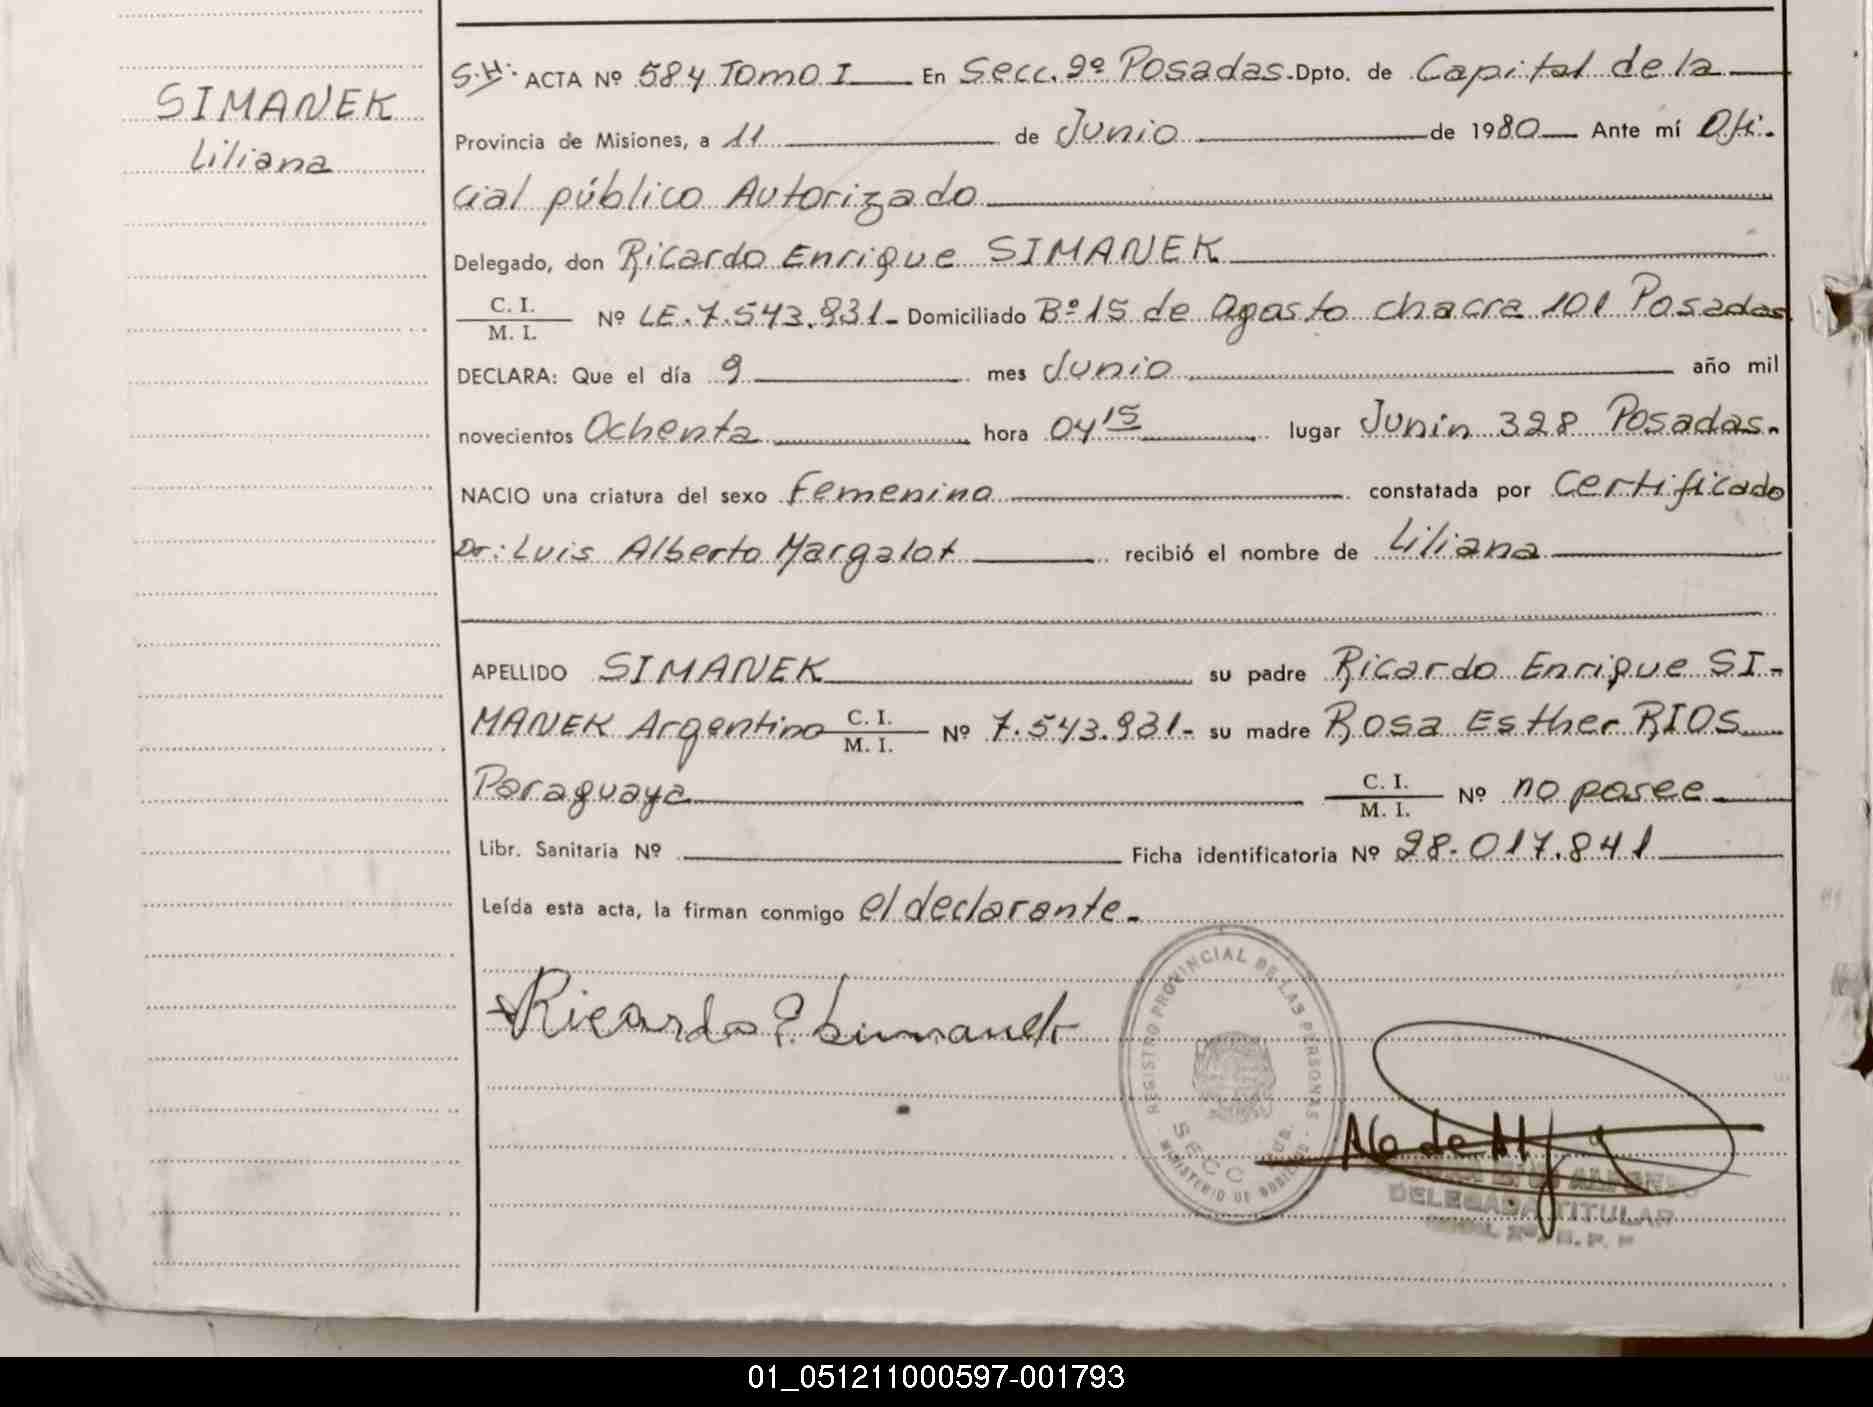 SIMANEK
Liliana
S.H: ACTA Nº 584 Tomo I En Secc. 2º Posadas. Dpto. de Capital de la
Provincia de Misiones, a 11 de Junio de 1980 Ante mí Ofi-
cial público Autorizado
Delegado, don Ricardo Enrique SIMANEK
C. I. / M. I. Nº LE. 7.543.931- Domiciliado Bº 15 de Agosto chacra 101 Posadas
DECLARA: Que el día 9 mes Junio año mil
novecientos Ochenta hora 04 15 lugar Junin 328 Posadas.
NACIO una criatura del sexo Femenino constatada por Certificado
Dr: Luis Alberto Margalot recibió el nombre de Liliana
APELLIDO SIMANEK su padre Ricardo Enrique SI-
MANEK Argentino C. I. / M. I. Nº 7.543.931- su madre Rosa Esther RIOS
Paraguaya C. I. / M. I. Nº no posee
Libr. Sanitaria Nº Ficha identificatoria Nº 28.017.841
Leída esta acta, la firman conmigo el declarante.
Ricardo E. Simanek
REGISTRO PROVINCIAL DE LAS PERSONAS
SECC
MINISTERIO DE GOBIERNO
DELEGADA TITULAR
01_051211000597-001793